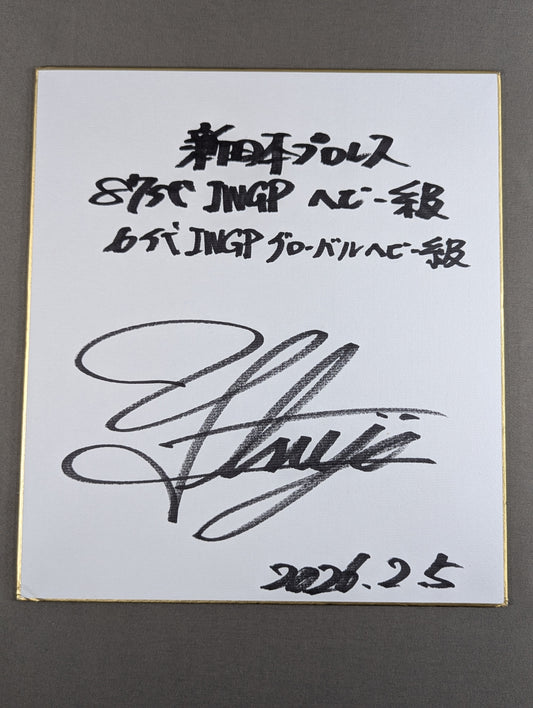 新日本プロレス
87代 IWGP ヘビー級
6代 IWGP グローバルヘビー級
Y Tsuji
2026.2.5